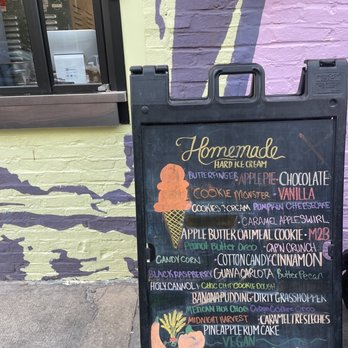 Homemade
HARD ICE CREAM
BUTTERFINGER APPLE PIE • CHOCOLATE
COOKIE MONSTER • VANILLA
COOKIES 'N CREAM PUMPKIN CHEESECAKE
• CARAMEL APPLE SWIRL
APPLE BUTTER OATMEAL COOKIE • M2B
Peanut Butter Oreo • CAP'N CRUNCH
CANDY CORN • COTTON CANDY • CINNAMON
BLACK RASPBERRY • GUAVA CARLOTA • Butter Pecan
HOLY CANNOLI • CHOC CHIP COOKIE DOUGH
BANANA PUDDING • DIRTY GRASSHOPPER
MEXICAN HOT CHOCO
MIDNIGHT HARVEST • CARAMEL TRES LECHES
PINEAPPLE RUM CAKE
VEGAN